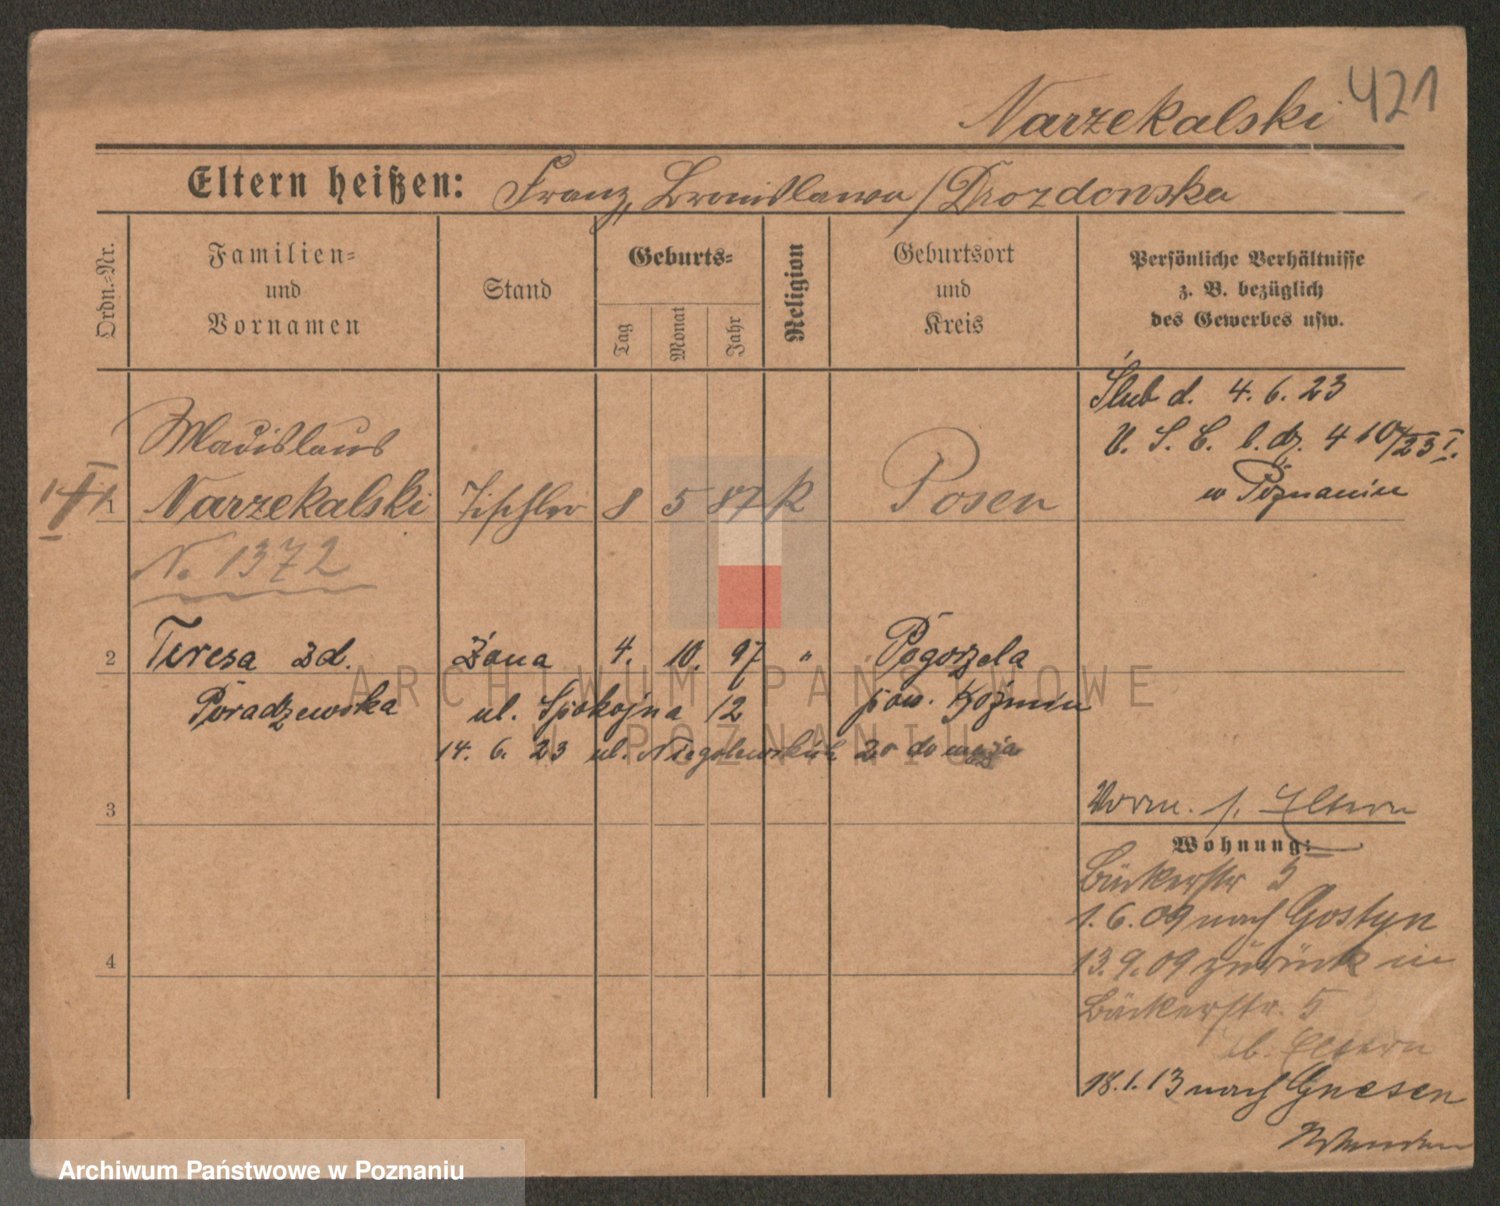 Narzekalski 421
Eltern heißen: Franz, Bronislawa / Drozdowska
Ordn.-Nr.
Familien-
und
Vornamen
Stand
Geburts-
Tag
Monat
Jahr
Religion
Geburtsort
und
Kreis
Persönliche Verhältnisse
z. B. bezüglich
des Gewerbes usw.
Ślub d. 4. 6. 23
U. S. C. l. dz. 410/23 I.
w Poznaniu
Wladislaus
1 Narzekalski Tischler 8 5 87 K Posen
N. 1372
2 Teresa zd. Żona 4. 10. 97 " Pogorzela
Poradzewska ul. Spokojna 12 pow. Koźmin
14. 6. 23 ul. Niegolewskich 20
3
4
Vorm. s. Eltern
Wohnung:
Bäckerstr 5
1.6.09 nach Gostyn
13.9.09 zurück in
Bäckerstr. 5
b. Eltern
18.1.13 nach Gnesen
ARCHIWUM PAŃSTWOWE
W POZNANIU
Archiwum Państwowe w Poznaniu